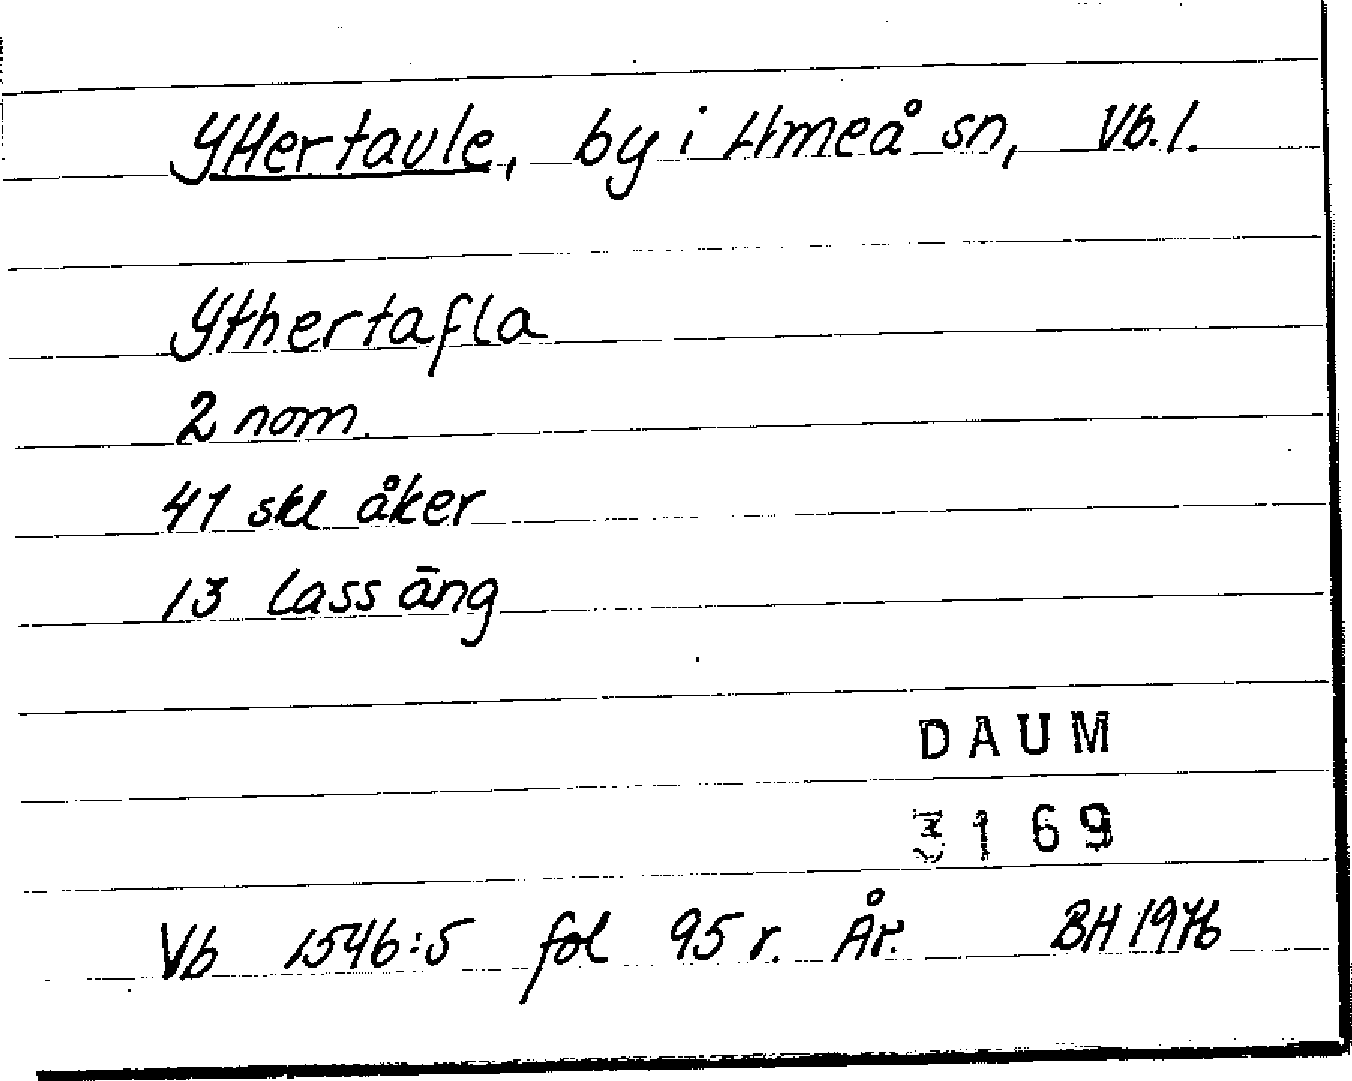 Yttertavle, by i Umeå sn, Vb. l.
Ythertafla
2 nom.
41 skl åker
13 lass äng
DAUM
3169
Vb 1546:5 fol 95 r. År. BH 1976